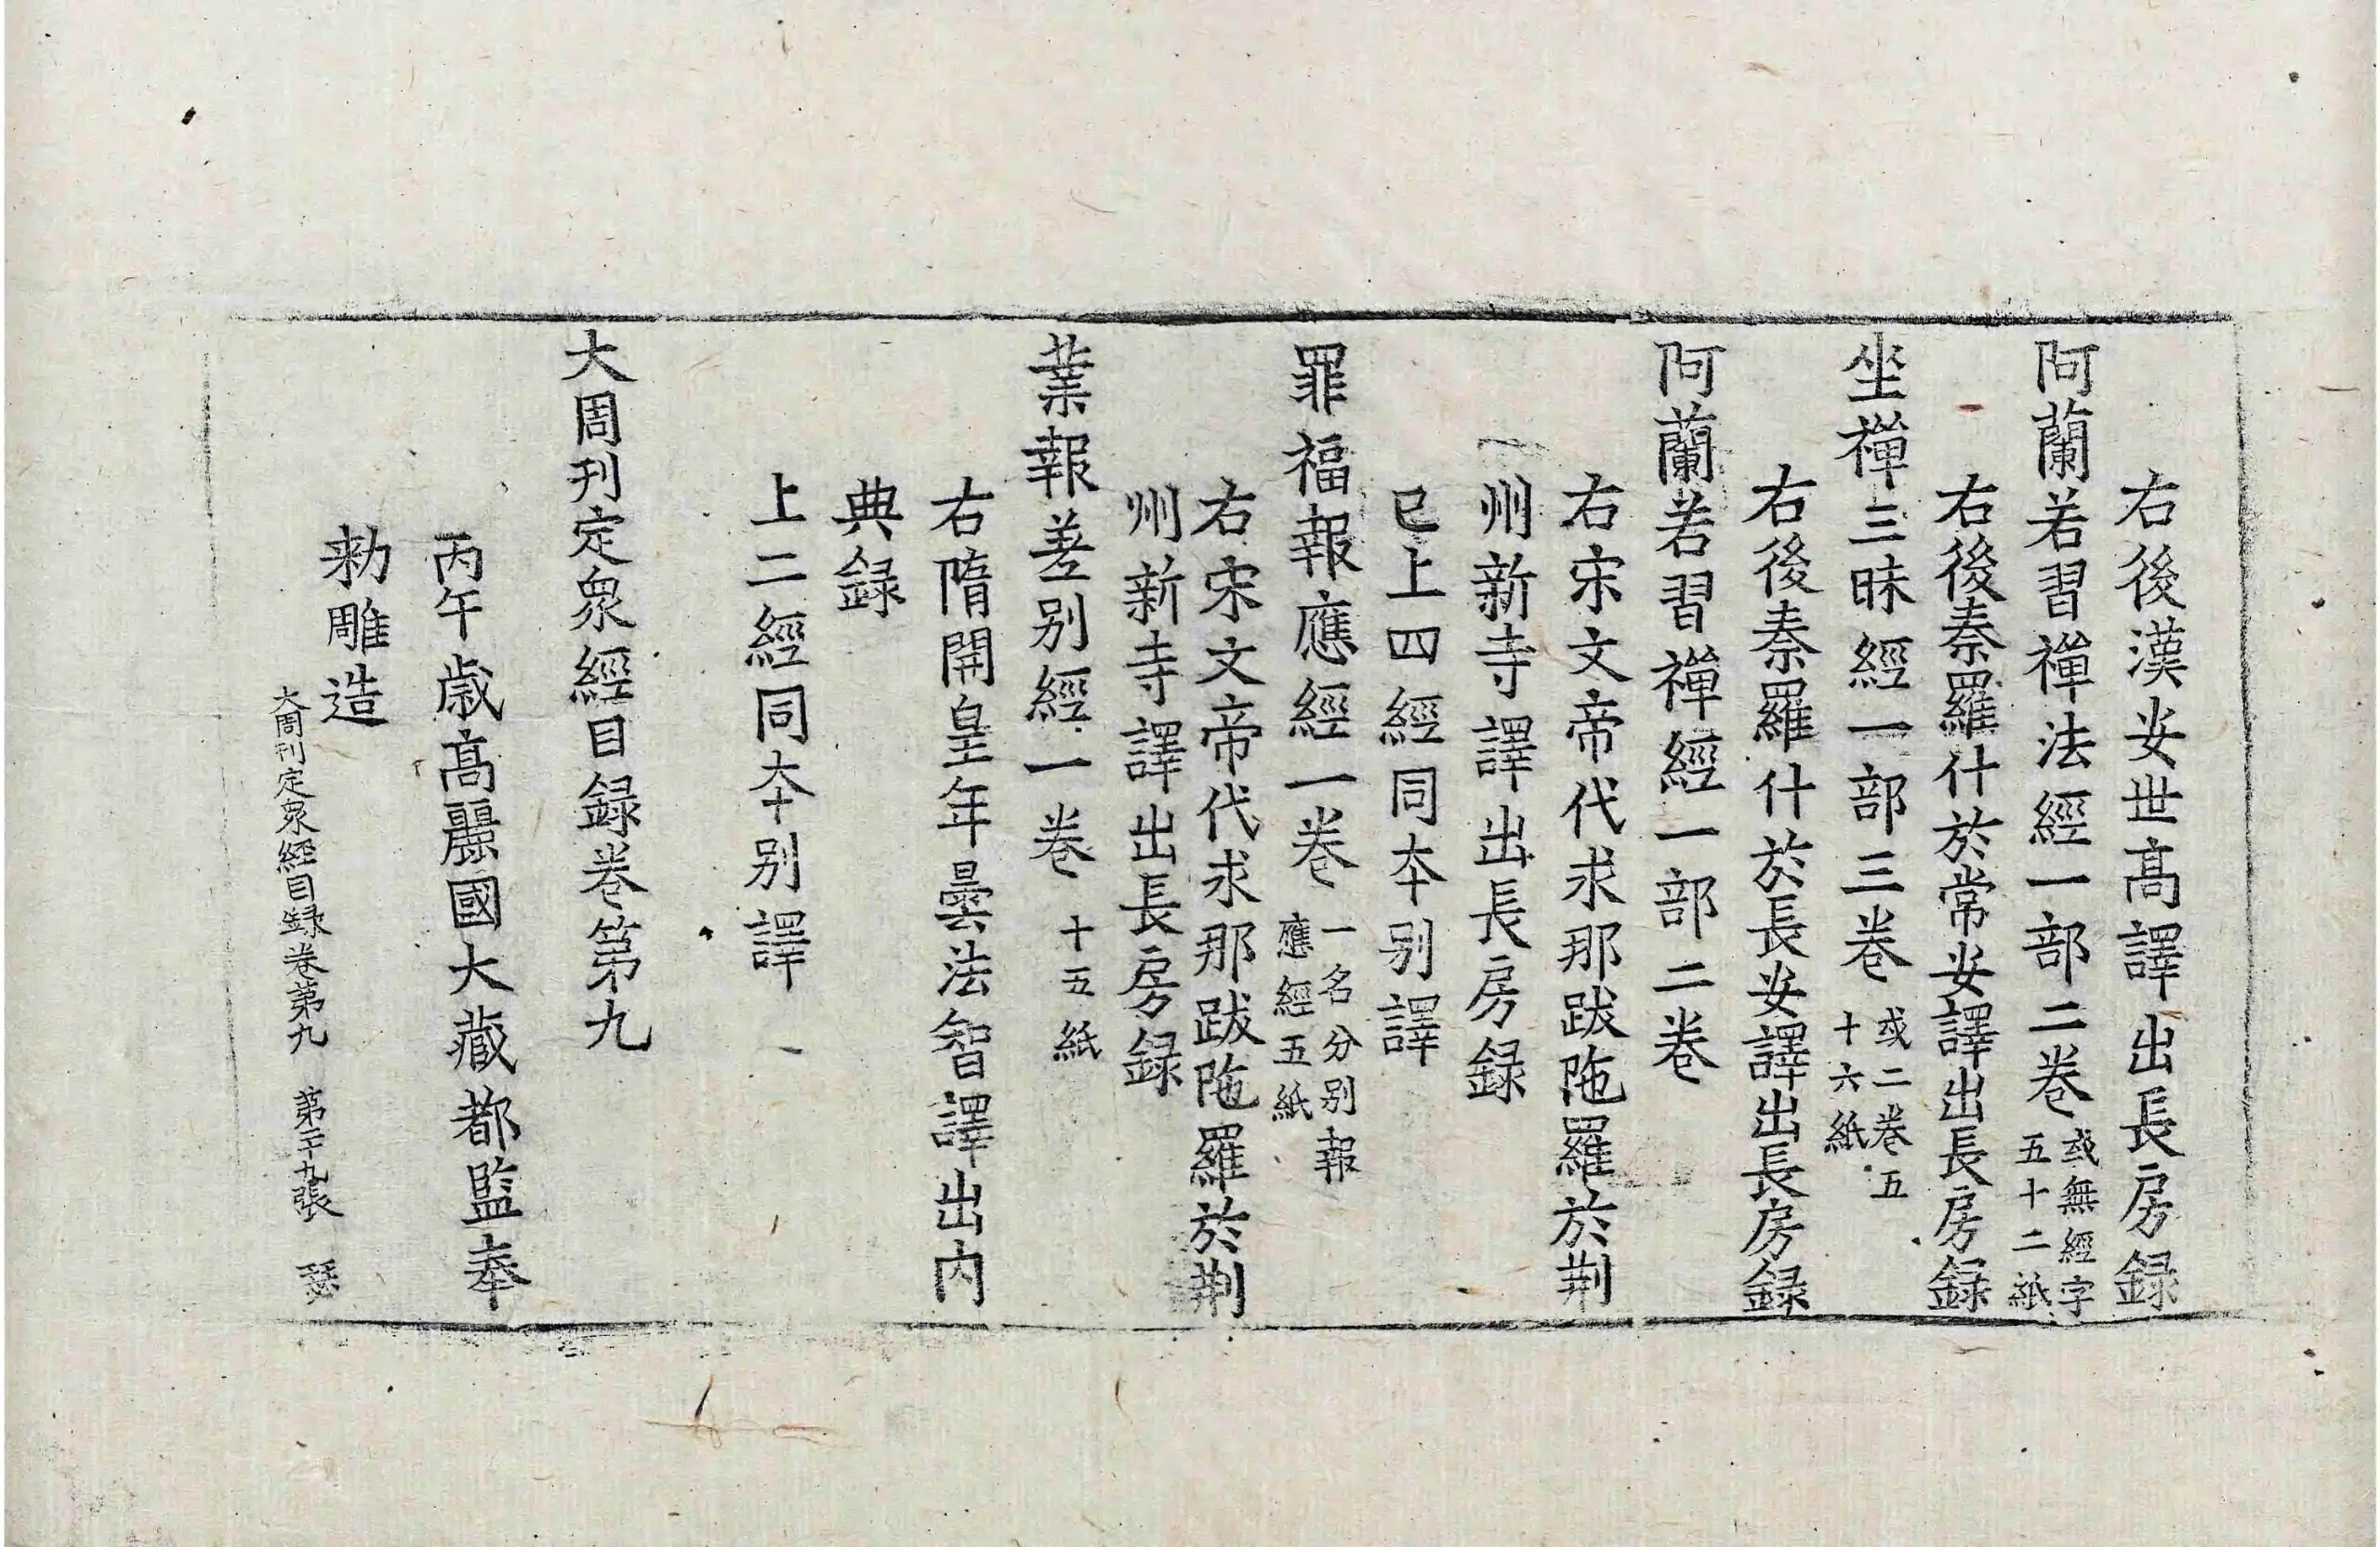 右後漢安世髙譯出長房録
阿蘭若習禪法經一部二卷 或無經字五十二紙
右後秦羅什於常安譯出長房録
坐禪三昧經一部三卷 或二卷五十六紙
右後秦羅什於長安譯出長房録
阿蘭若習禪經一部二卷
右宋文帝代求那跋陁羅於荆
州新寺譯出長房録
已上四經同夲别譯
罪福報應經一卷 一名分别報應經五紙
右宋文帝代求那跋陁羅於荆
州新寺譯出長房録
業報差别經一卷 十五紙
右隋開皇年曇法智譯出内
典録
上二經同夲别譯
大周刊定衆經目録卷第九
丙午歳髙麗國大藏都監奉
勑雕造
大周刊定衆經目録卷第九 第二十九張 瑟